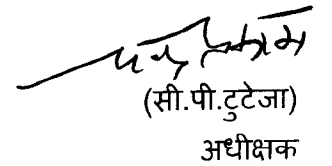 (सी.पी.टुटेजा)
अधीक्षक